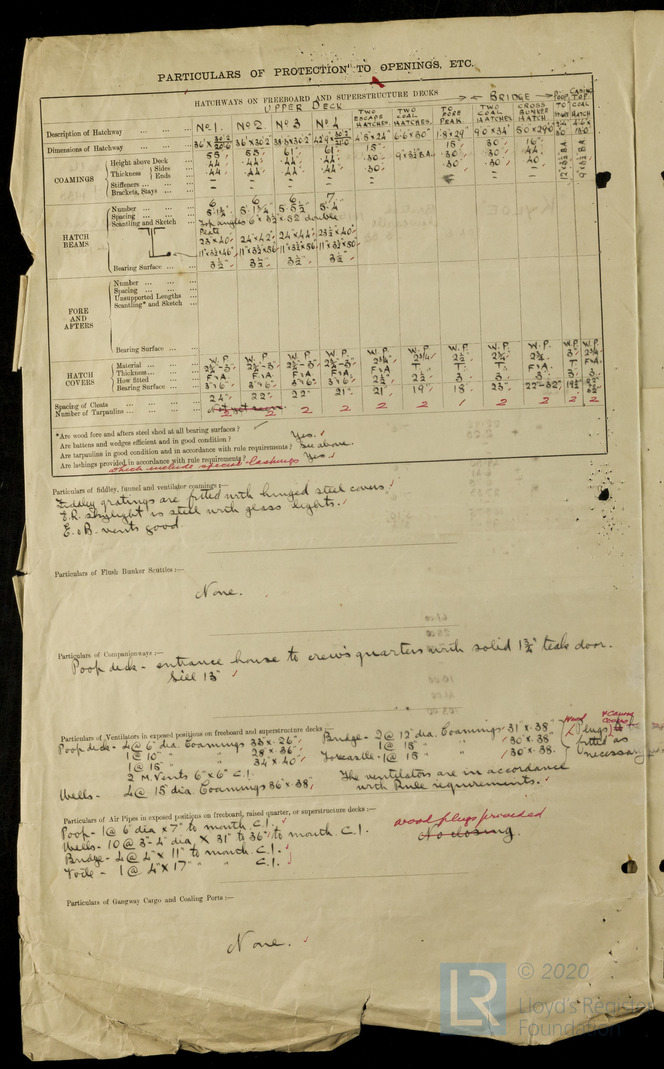 PARTICULARS OF PROTECTION TO OPENINGS, ETC.
HATCHWAYS ON FREEBOARD AND SUPERSTRUCTURE DECKS
UPPER DECK
BRIDGE
Description of Hatchway No 1. No 2. No 3 No 4 TWO ESCAPE HATCHES. TWO COAL HATCHES. TO FORE PEAK. TWO COAL HATCHES CROSS BUNKER HATCH COAL HATCH
Dimensions of Hatchway
COAMINGS
Height above Deck 55 55 61 61 15" 15 30 16"
Thickness Sides .44 .44 .44 .44 .30 .30 .30 .44
Ends .44 .44 .44 .44 .30 .30 .30 .40
Stiffeners
Brackets, Stays
HATCH BEAMS
Number 6 6 6 7
Spacing
Scantling and Sketch Top angles 6 × 3½ × 52 double
Plate 23"×40 24"×42 24"×44 23½×40
Bearing Surface 3½ 3½ 3½ 3½
FORE AND AFTERS
Number
Spacing
Unsupported Lengths
Scantling* and Sketch
Bearing Surface
HATCH COVERS
Material W.P. W.P. W.P. W.P. W.P. W.P. W.P. W.P. W.P. W.P. W.P.
Thickness 2½-3" 2½-3" 2½-3" 2½-3"
How fitted F&A F&A F&A F&A F&A T T T F&A T F&A
Bearing Surface
Spacing of Cleats 24" 22" 22" 21" 21" 19" 18 23"
Number of Tarpaulins 2 2 2 2 2 2 1 2 2 2 2
*Are wood fore and afters steel shod at all bearing surfaces?
Are battens and wedges efficient and in good condition? Yes.
Are tarpaulins in good condition and in accordance with rule requirements? See above.
Are lashings provided in accordance with rule requirements? Yes
which include special lashings
Particulars of fiddley, funnel and ventilator coamings:—
Fiddley gratings are fitted with hinged steel covers.
E.R. skylight is steel with glass lights.
E. & B. vents good
Particulars of Flush Bunker Scuttles:—
None.
Particulars of Companionways:—
Poop deck - entrance house to crew's quarters with solid 1¾" teak door.
Sill 15"
Particulars of Ventilators in exposed positions on freeboard and superstructure decks:—
Poop deck - 4 @ 6" dia. Coamings 33 × 26"
1 @ 10" " " 28 × 36"
1 @ 15" " " 34" × 40"
2 M. Vents 6" × 6" C.I.
Wells - 4 @ 15" dia. Coamings 36" × 38
Bridge - 2 @ 12" dia. Coamings 31" × 38
1 @ 15" " " 30" × 38
Forecastle - 1 @ 15" " " 30" × 38.
Wood Plugs & Canvas Covers fitted as necessary
The ventilators are in accordance
with Rule requirements.
Particulars of Air Pipes in exposed positions on freeboard, raised quarter, or superstructure decks:—
Poop - 1 @ 6" dia × 7" to mouth C.I.
Wells - 10 @ 3"-4" dia, × 31" to 36" to mouth C.I.
Bridge - 4 @ 4" × 11" to mouth C.I.
F'cle - 1 @ 4" × 17" " " C.I.
wood plugs provided
No closing.
Particulars of Gangway Cargo and Coaling Ports:—
None.
LR
© 2020
Lloyd's Register
Foundation